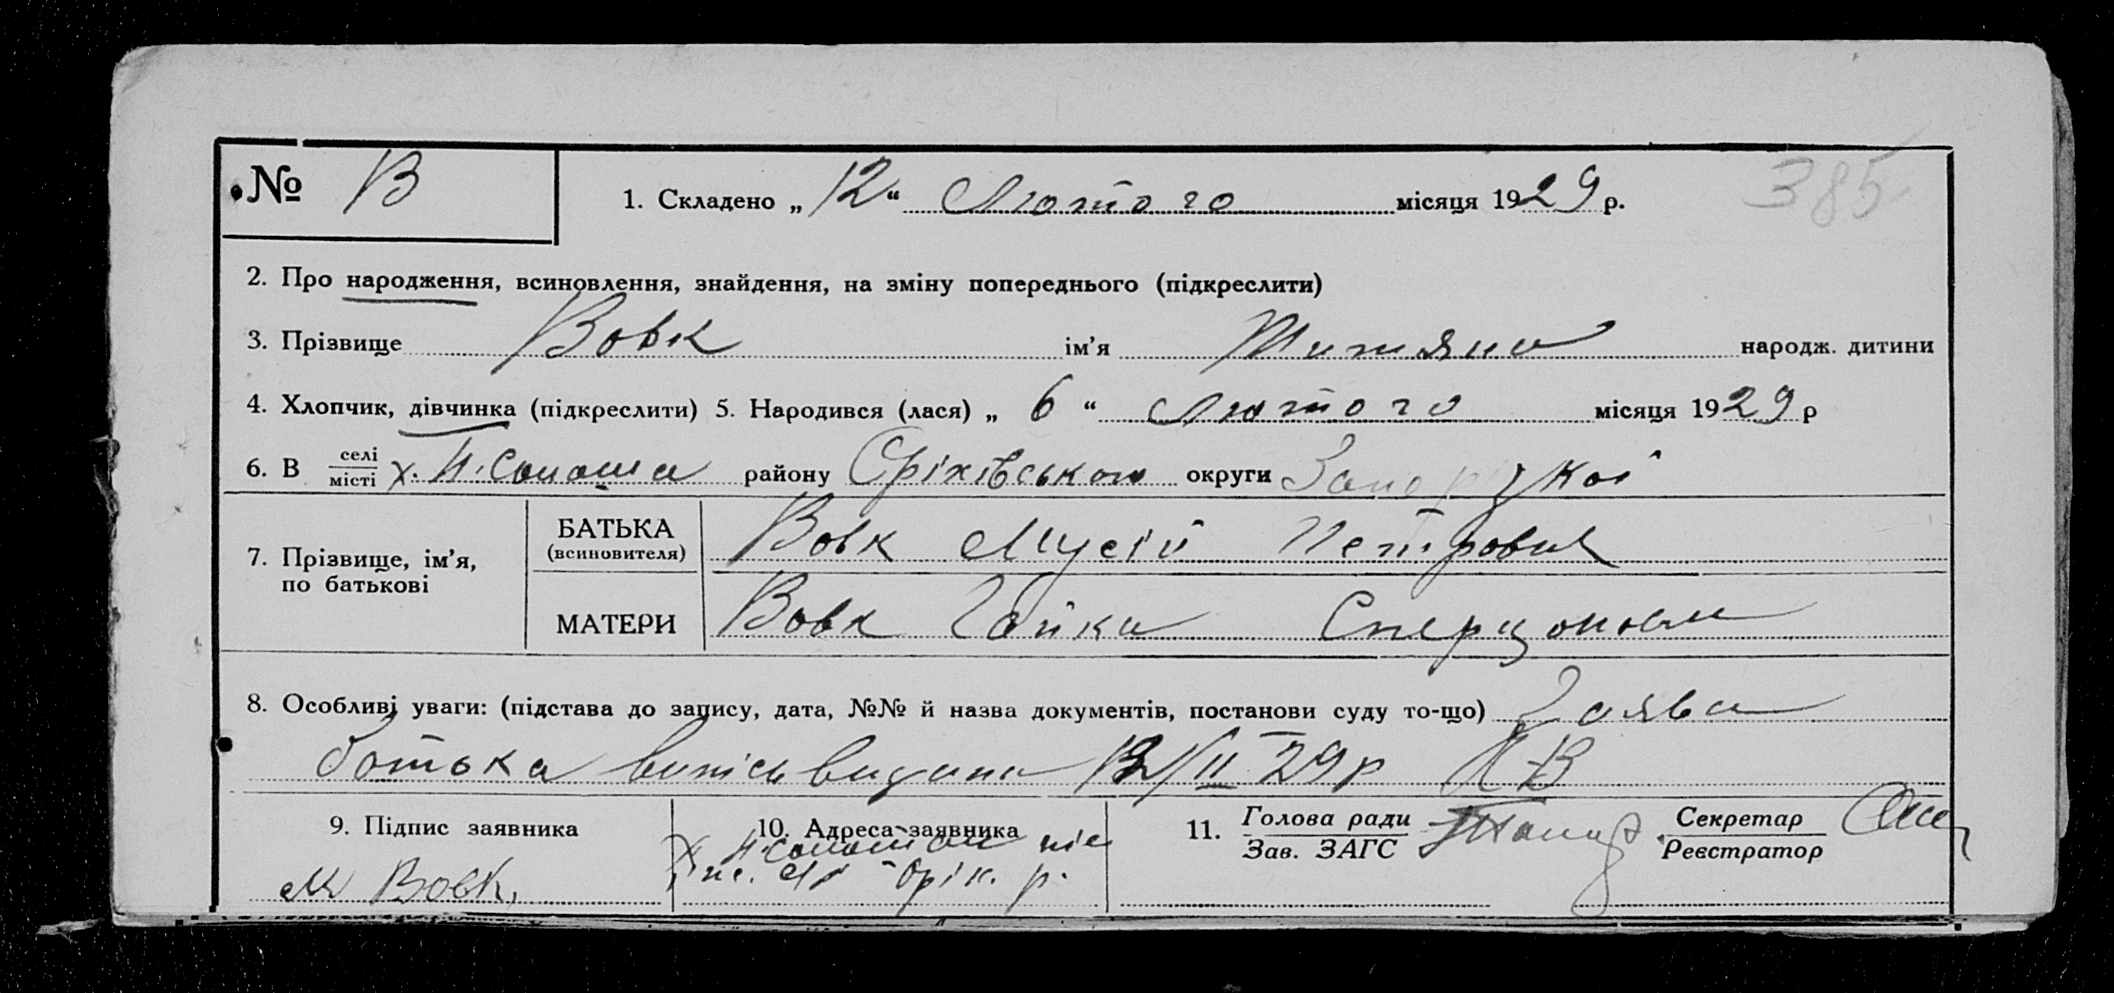 № В 1. Складено „ 12 “ Лютого місяця 1929 р. 385
2. Про народження, всиновлення, знайдення, на зміну попереднього (підкреслити)
3. Прізвище Вовк ім’я Титяна народж. дитини
4. Хлопчик, дівчинка (підкреслити) 5. Народився (лася) „ 6 “ Лютого місяця 1929 р
6. В селі місті х. району Оріхівського округи Запорізької
7. Прізвище, ім’я, по батькові
БАТЬКА (всиновителя) Вовк Мусій Петрович
МАТЕРИ Вовк
8. Особливі уваги: (підстава до запису, дата, №№ й назва документів, постанови суду то-що) Заява
батька видана 12/II 29р
9. Підпис заявника 10. Адреса заявника 11. Голова ради Зав. ЗАГС Секретар Реєстратор
М Вовк. Оріх. р.